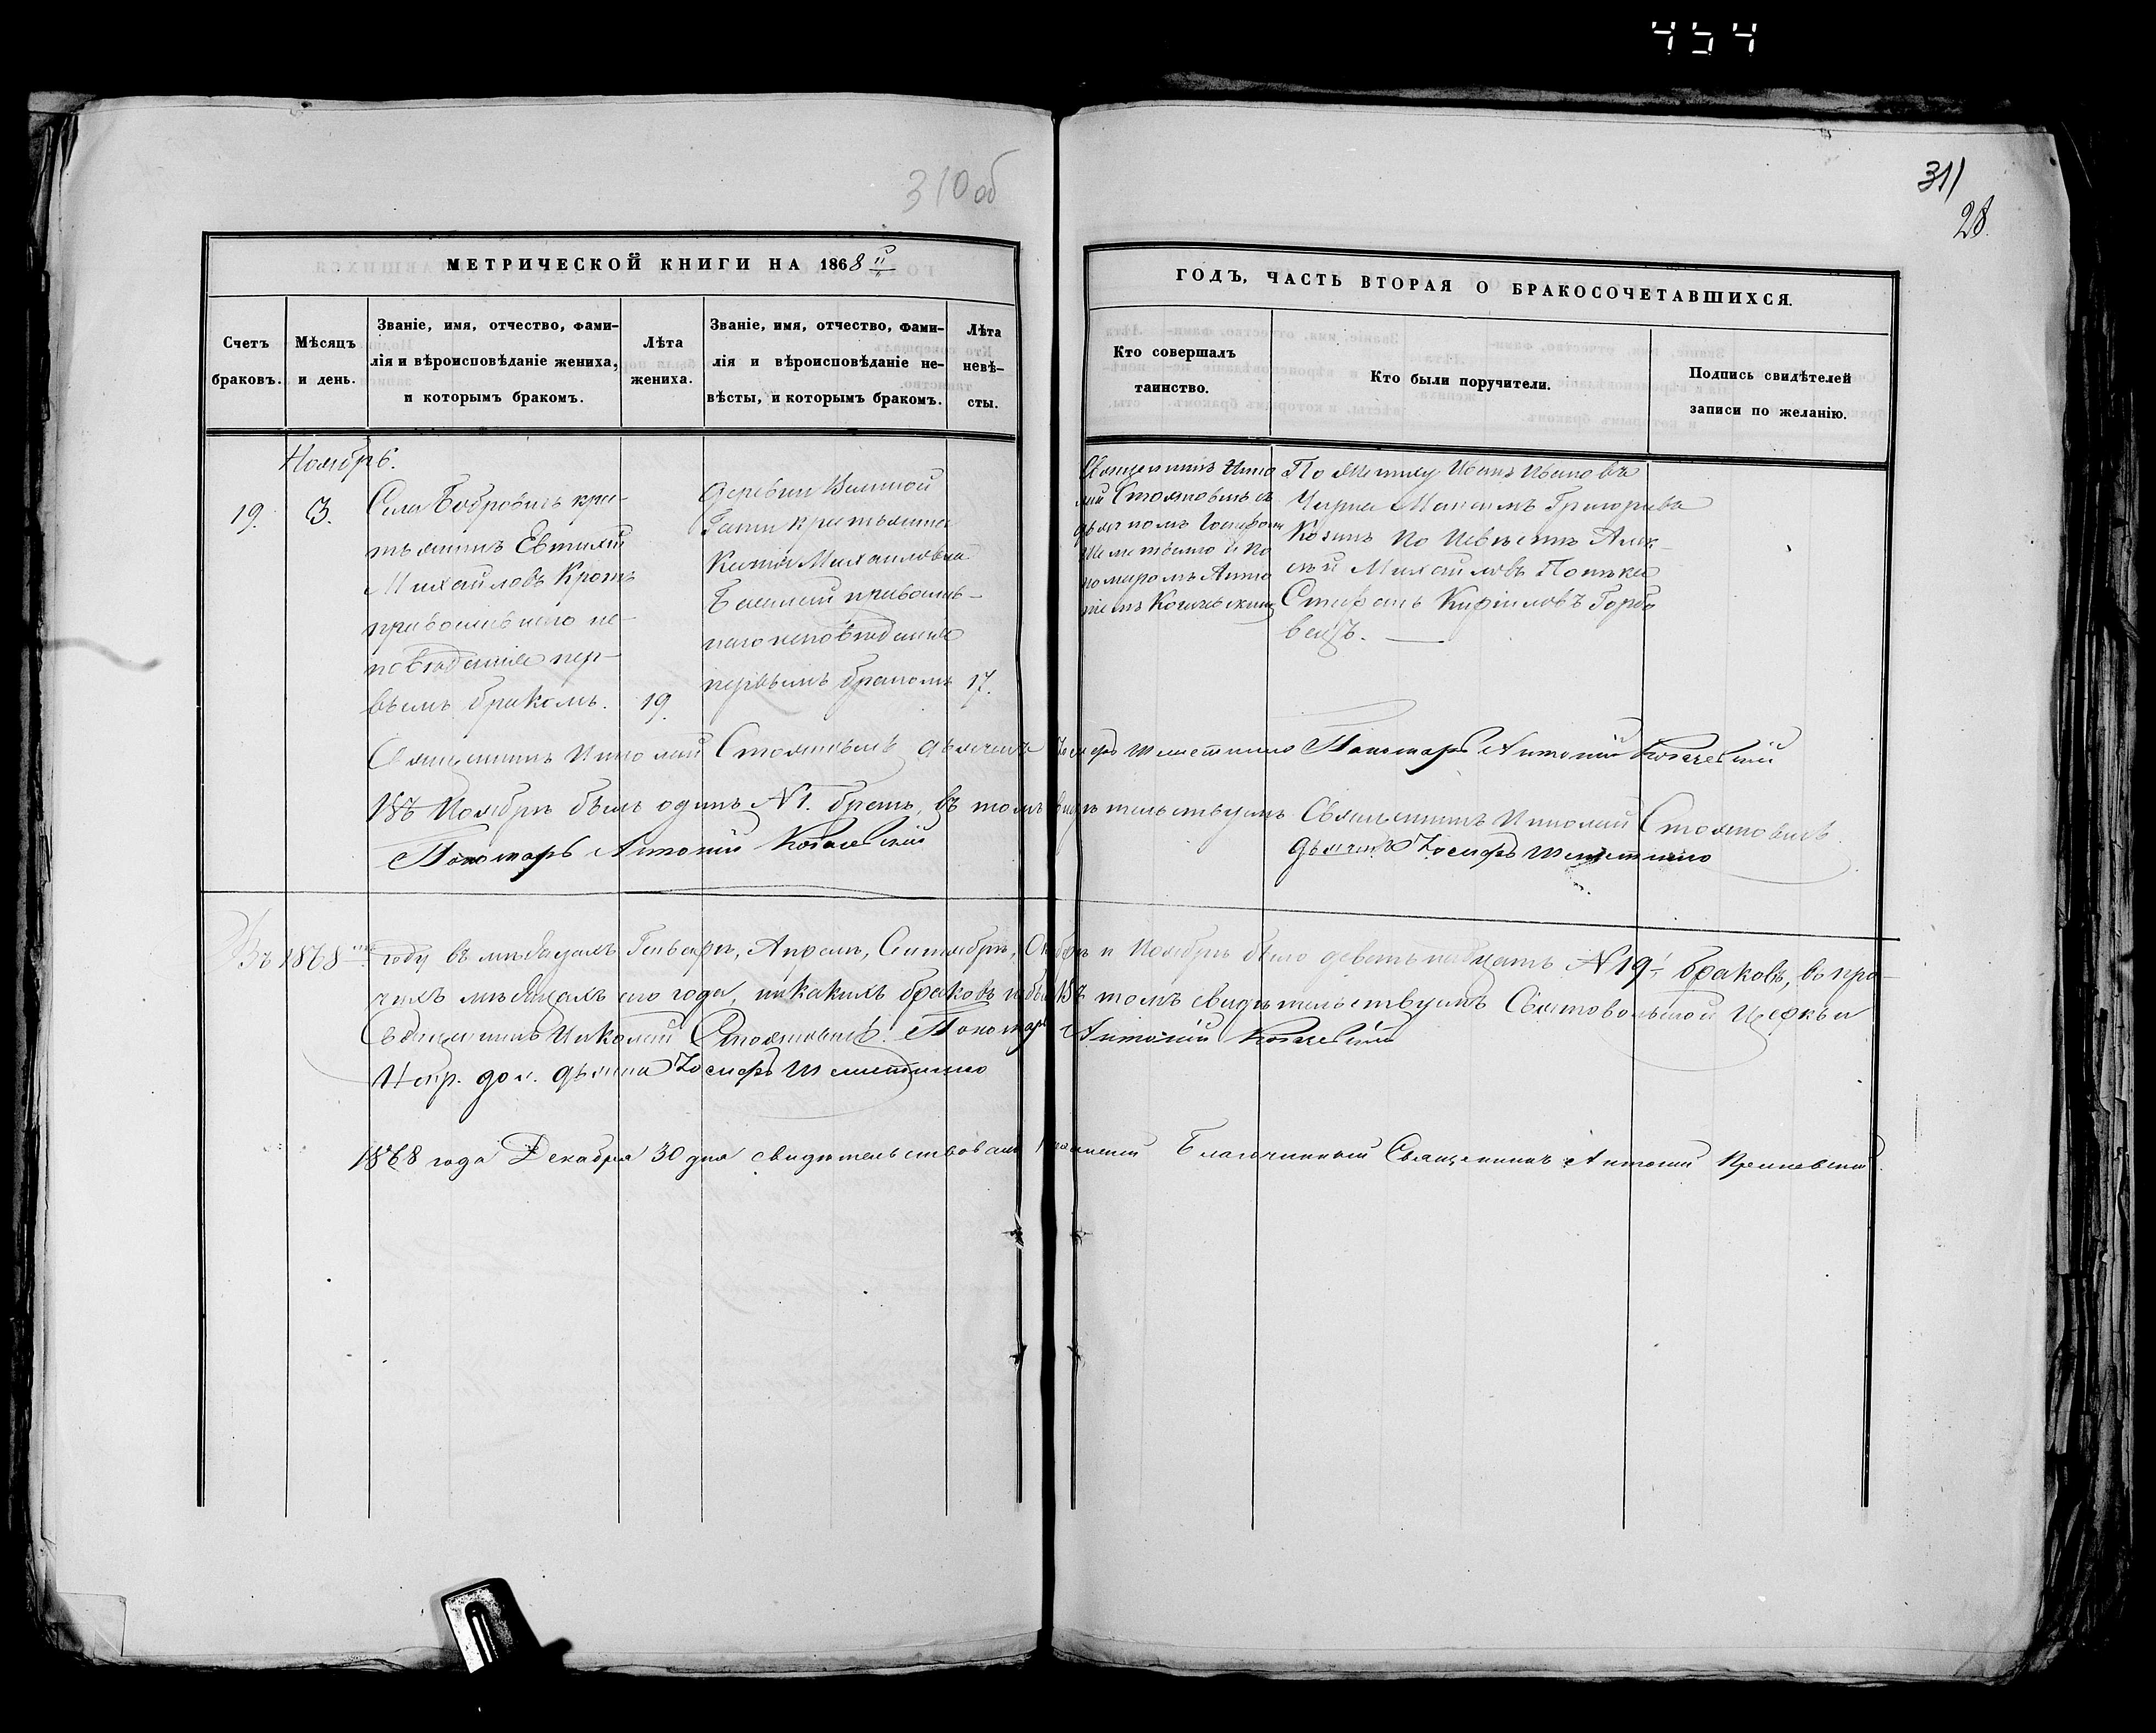 454
310 об
311
28
МЕТРИЧЕСКОЙ КНИГИ НА 1868 й
ГОДЪ, ЧАСТЬ ВТОРАЯ О БРАКОСОЧЕТАВШИХСЯ.
Счетъ
браковъ.
Мѣсяцъ
и день.
Званіе, имя, отчество, фами-
лія и вѣроисповѣданіе жениха,
и которымъ бракомъ.
Лѣта
жениха.
Званіе, имя, отчество, фами-
лія и вѣроисповѣданіе не-
вѣсты, и которымъ бракомъ.
Лѣта
невѣ-
сты.
Кто совершалъ
таинство.
Кто были поручители.
Подпись свидѣтелей
записи по желанію.
Ноябрь.
19.
3.
Села Бобровичъ кре-
стьянинъ Евтихій
Михаиловъ Кротъ
православнаго ис-
повѣданія пер-
вымъ бракомъ.
19.
Деревни Великой
Гати крестьянка
Михаиловна
православ-
наго исповѣданія
первымъ бракомъ
17.
Священникъ Нико
лай Стояновичъ съ
дьячкомъ Іосифомъ
Шеметилло и по
номаремъ Анто
ніемъ
По жениху Иванъ Ивановъ
Максимъ Григорьевъ
Козакъ по невѣстѣ Алек-
сѣй Михаиловъ
Стефанъ Кириловъ Горба
вецъ.
Священникъ Николай Стояновичъ дьячекъ Іосифъ Шеметилло Пономарь Антоній
Въ Ноябрѣ былъ одинъ №1. бракъ, въ томъ свидѣтельствуемъ Священникъ Николай Стояновичъ
Пономарь Антоній
дьячекъ Іосифъ Шеметилло
Въ 1868 году въ мѣсяцахъ Генварѣ, Апрелѣ, Сентябрѣ, Октябрѣ и Ноябрѣ было девятьнадцать №19. браковъ, въ про-
чихъ мѣсяцахъ сего года, никакихъ браковъ небыло. Въ томъ свидѣтельствуемъ Святовольской Церкви
Священникъ Николай Стояновичъ. Пономарь Антоній
Испр. дол. дьячка Іосифъ Шеметилло
1868 года Декабря 30 дня свидѣтельствовалъ Благочинный Священникъ Антоній